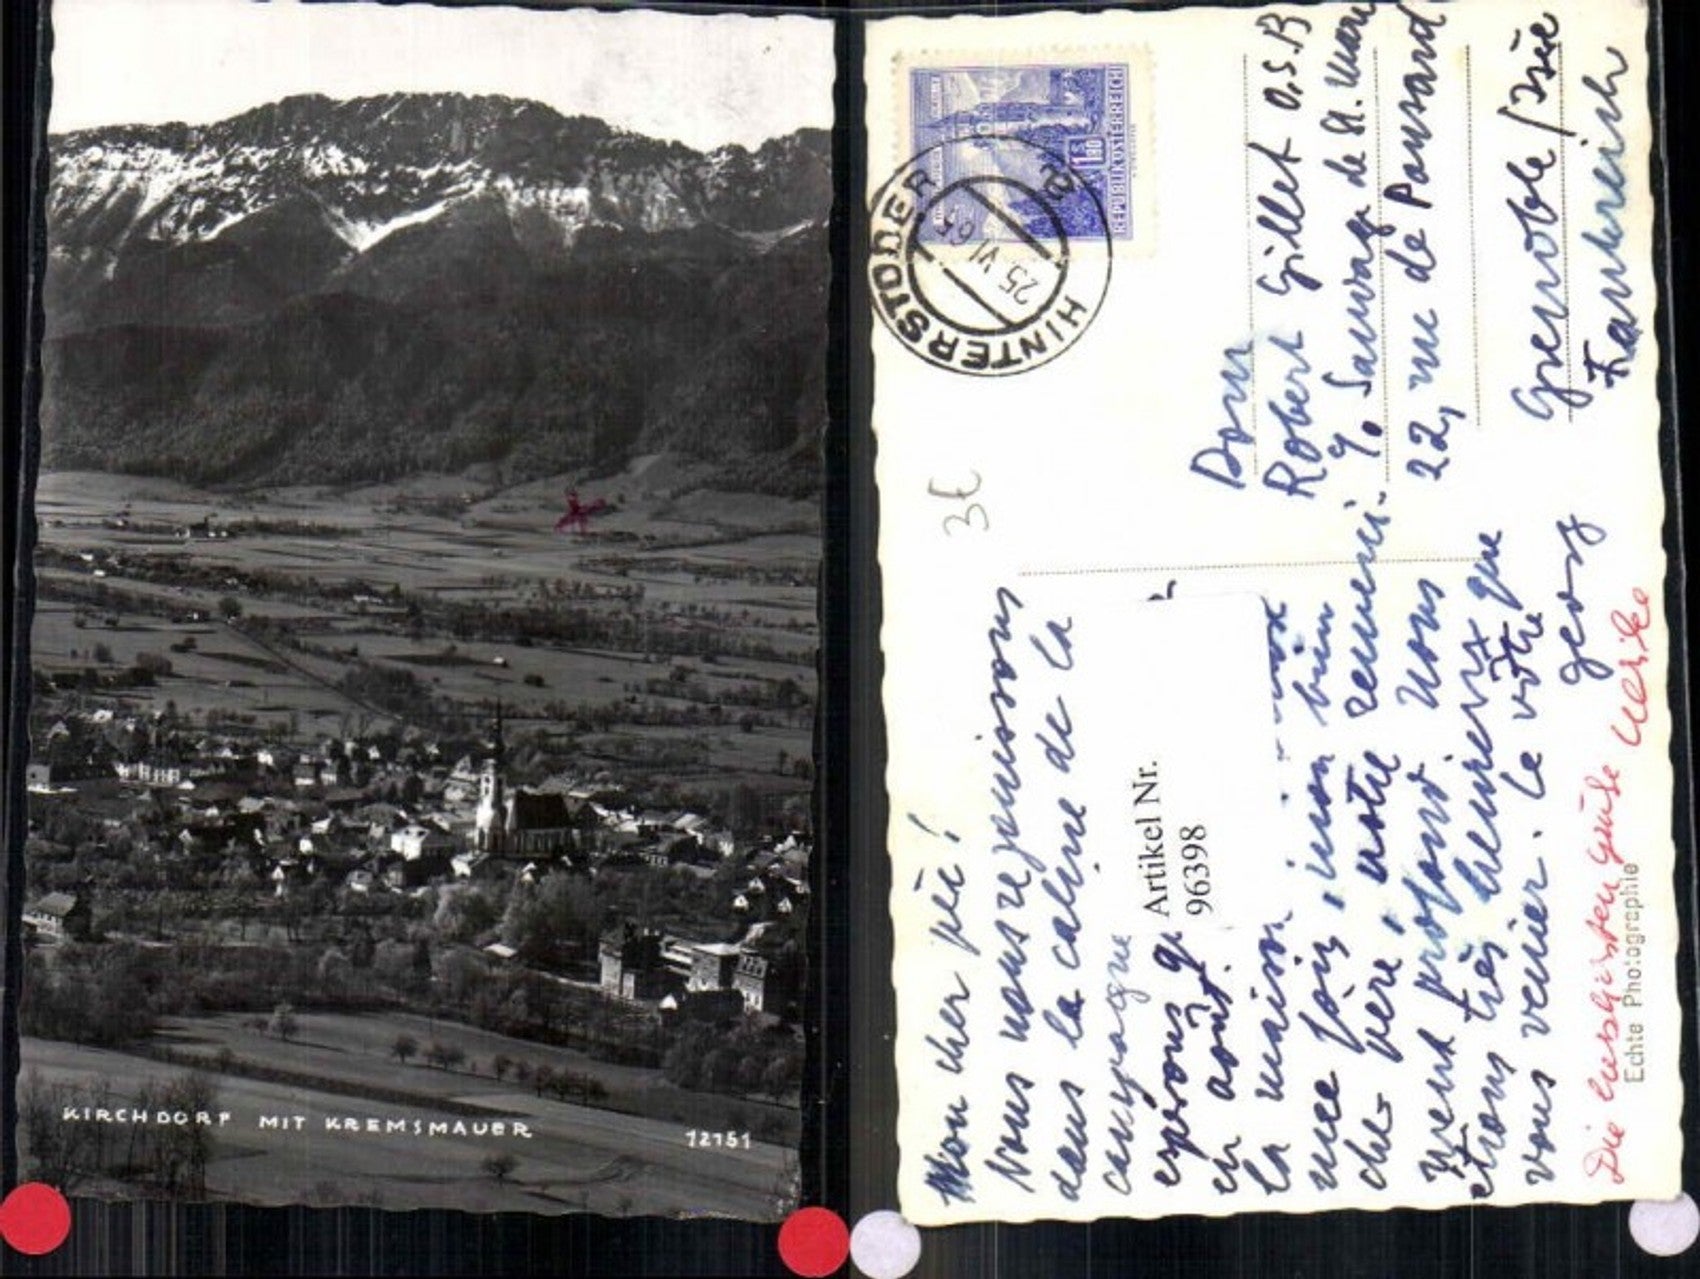 KIRCHDORF MIT KREMSMAUER
12151
REPUBLIK ÖSTERREICH
HINTERSTODER
25 VI 65
3€
Dom
Robert Gillet O.S.B
22, rue de
Grenoble / Isère
Frankreich
Mon cher père!
Nous nous réjouissons
dans la calme de la
campagne
espérons
en août.
la maison
une fois, mon bien
cher père, notre remerci-
ment profond. Nous
étions très heureux que
vous venier. Le vôtre
Georg
Artikel Nr.
96398
Die herzlichsten Grüße Ulrike
Echte Photographie